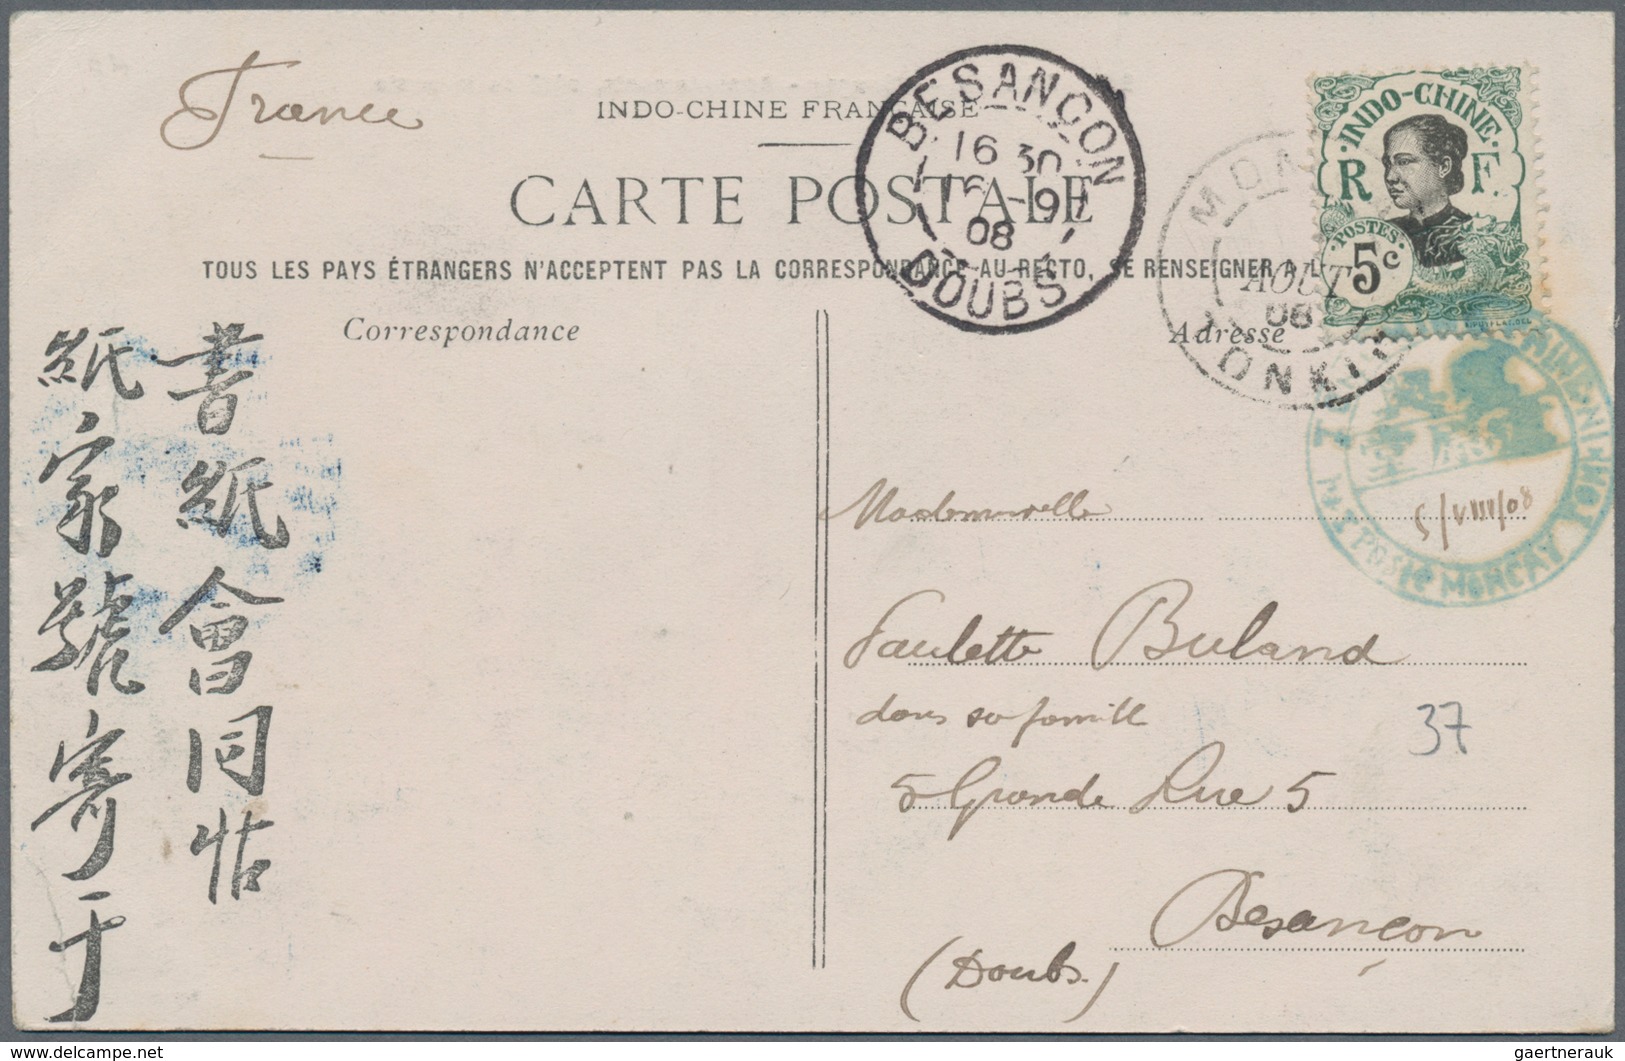 France
INDO-CHINE FRANÇAISE
CARTE POSTALE
TOUS LES PAYS ÉTRANGERS N'ACCEPTENT PAS LA CORRESPONDANCE AU RECTO, SE RENSEIGNER A L
Correspondance
Adresse
BESANÇON
16 30
16 -9
08
DOUBS
AOUT
08
TONKIN
INDO-CHINE
R F
POSTES
5c
書紙會同帖
紙家號寄于
5/VIII/08
POSTE MONCAY
Mademoiselle
Paulette Buland
dans sa famille
37
5 Grande Rue 5
Besançon
(Doubs)
gaertnerauk